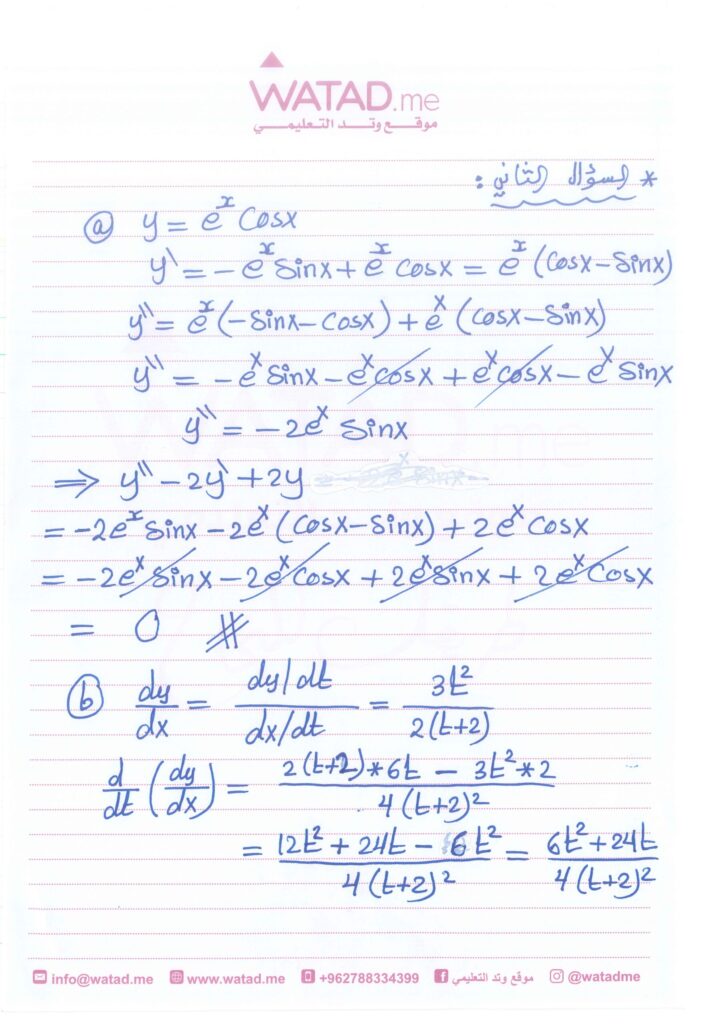 WATAD.me
موقع وتد التعليمي
* السؤال الثاني :
ⓐ y = e^x Cosx
y\ = -e^x Sinx + e^x Cosx = e^x (Cosx - Sinx)
y\\ = e^x (-Sinx - Cosx) + e^x (Cosx - Sinx)
y\\ = -e^x Sinx - e^x Cosx + e^x Cosx - e^x Sinx
y\\ = -2e^x Sinx
⇒ y\\ - 2y\ + 2y
= -2e^x Sinx - 2e^x (Cosx - Sinx) + 2e^x Cosx
= -2e^x Sinx - 2e^x Cosx + 2e^x Sinx + 2e^x Cosx
= 0 #
ⓑ dy/dx = (dy/dt)/(dx/dt) = 3t²/2(t+2)
d/dt (dy/dx) = (2(t+2)*6t - 3t²*2)/4(t+2)²
= (12t² + 24t - 6t²)/4(t+2)² = (6t² + 24t)/4(t+2)²
info@watad.me www.watad.me +962788334399 موقع وتد التعليمي @watadme